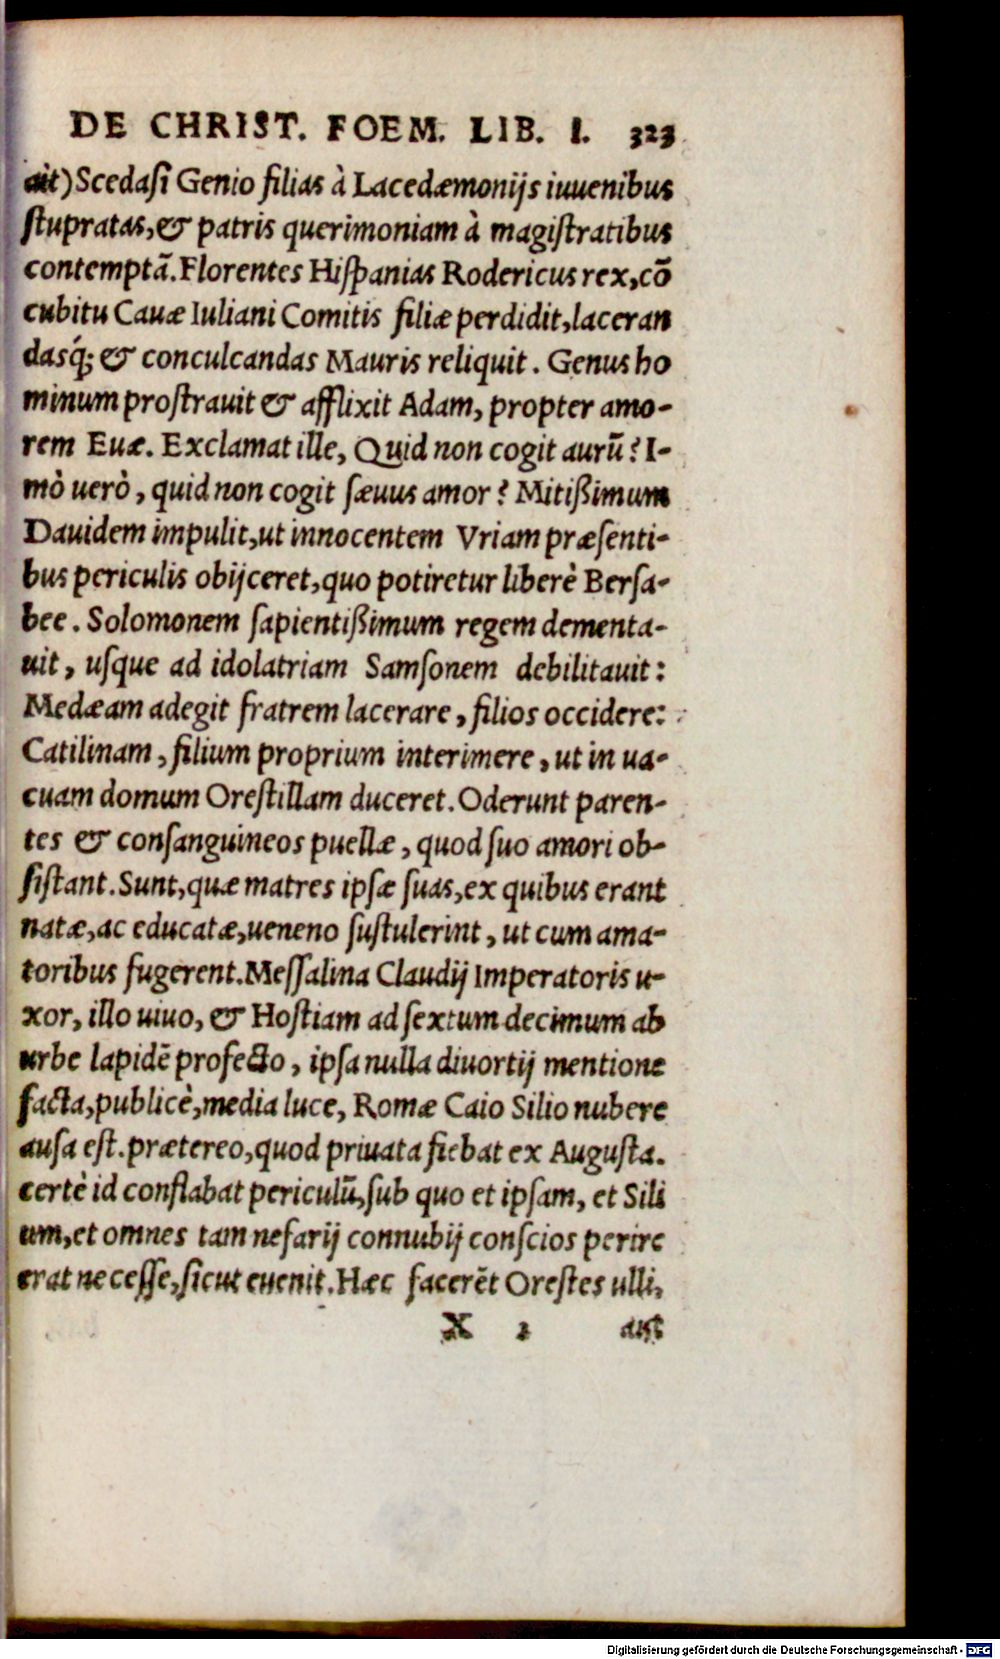 DE CHRIST. FOEM. LIB. I. 323
ait) Scedasi Genio filias à Lacedæmonijs iuuenibus
stupratas, & patris querimoniam à magistratibus
contemptã. Florentes Hispanias Rodericus rex, cõ
cubitu Cauæ Iuliani Comitis filiæ perdidit, laceran
dasq́; & conculcandas Mauris reliquit. Genus ho
minum prostrauit & afflixit Adam, propter amo-
rem Euæ. Exclamat ille, Quid non cogit aurũ? I-
mò uerò, quid non cogit sæuus amor? Mitißimum
Dauidem impulit, ut innocentem Vriam præsenti-
bus periculis obijceret, quo potiretur liberè Bersa-
bee. Solomonem sapientißimum regem dementa-
uit, usque ad idolatriam Samsonem debilitauit:
Medæam adegit fratrem lacerare, filios occidere:
Catilinam, filium proprium interimere, ut in ua-
cuam domum Orestillam duceret. Oderunt paren-
tes & consanguineos puellæ, quod suo amori ob-
sistant. Sunt, quæ matres ipsæ suas, ex quibus erant
natæ, ac educatæ, ueneno sustulerint, ut cum ama-
toribus fugerent. Messalina Claudij Imperatoris u-
xor, illo uiuo, & Hostiam ad sextum decimum ab
urbe lapidẽ profecto, ipsa nulla diuortij mentione
facta, publicè, media luce, Romæ Caio Silio nubere
ausa est. prætereo, quod priuata fiebat ex Augusta.
certè id conflabat periculũ, sub quo et ipsam, et Sili
um, et omnes tam nefarij connubij conscios perire
erat necesse, sicut euenit. Hæc facerẽt Orestes ulli,
X 2 aut
Digitalisierung gefördert durch die Deutsche Forschungsgemeinschaft - DFG